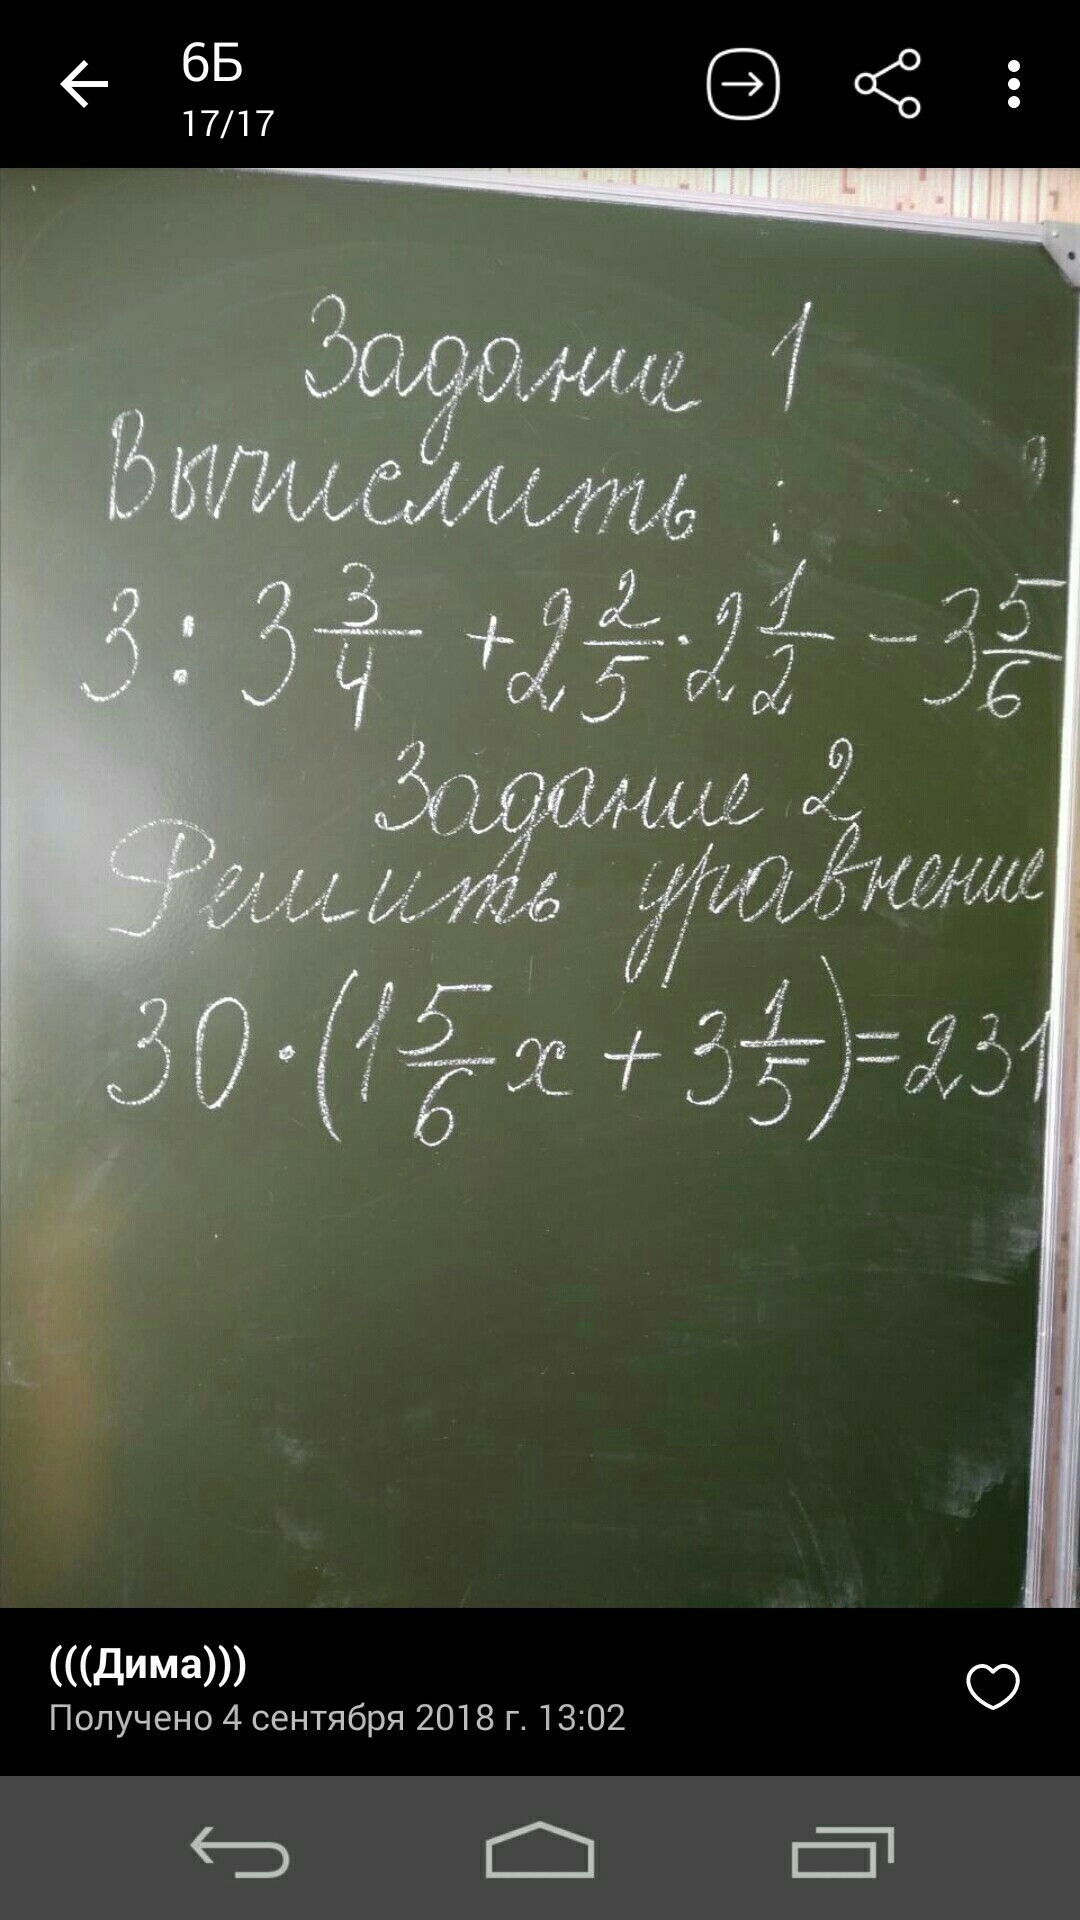 6Б
17/17
Задание 1
Вычислить :
3 : 3 3/4 + 2 2/5 · 2 1/2 - 3 5/6
Задание 2
Решить уравнение
30 · (1 5/6 x + 3 1/5) = 231
(((Дима)))
Получено 4 сентября 2018 г. 13:02